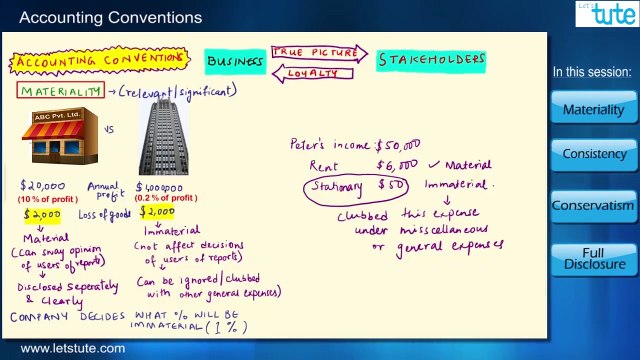 Accounting Conventions
Let's
tute
ACCOUNTING CONVENTIONS
BUSINESS
TRUE PICTURE
LOYALTY
STAKEHOLDERS
MATERIALITY → (relevant/significant)
ABC Pvt. Ltd.
VS
$20,000 Annual profit $1,000,000
(10 % of profit) (0.2 % of profit)
$2,000 Loss of goods $2,000
Material
(Can sway opinion
of users of reports)
Disclosed Seperately
& Clearly
Immaterial
(not affect decisions
of users of reports)
Can be ignored/clubbed
with other general expenses)
COMPANY DECIDES WHAT % WILL BE
IMMATERIAL (1 %)
Peter's income : $50,000
Rent $6,000 ✓ Material
Stationary $50 Immaterial.
Clubbed this expense
under misscellaneous
or general expenses
In this session:
Materiality
Consistency
Conservatism
Full
Disclosure
www.letstute.com